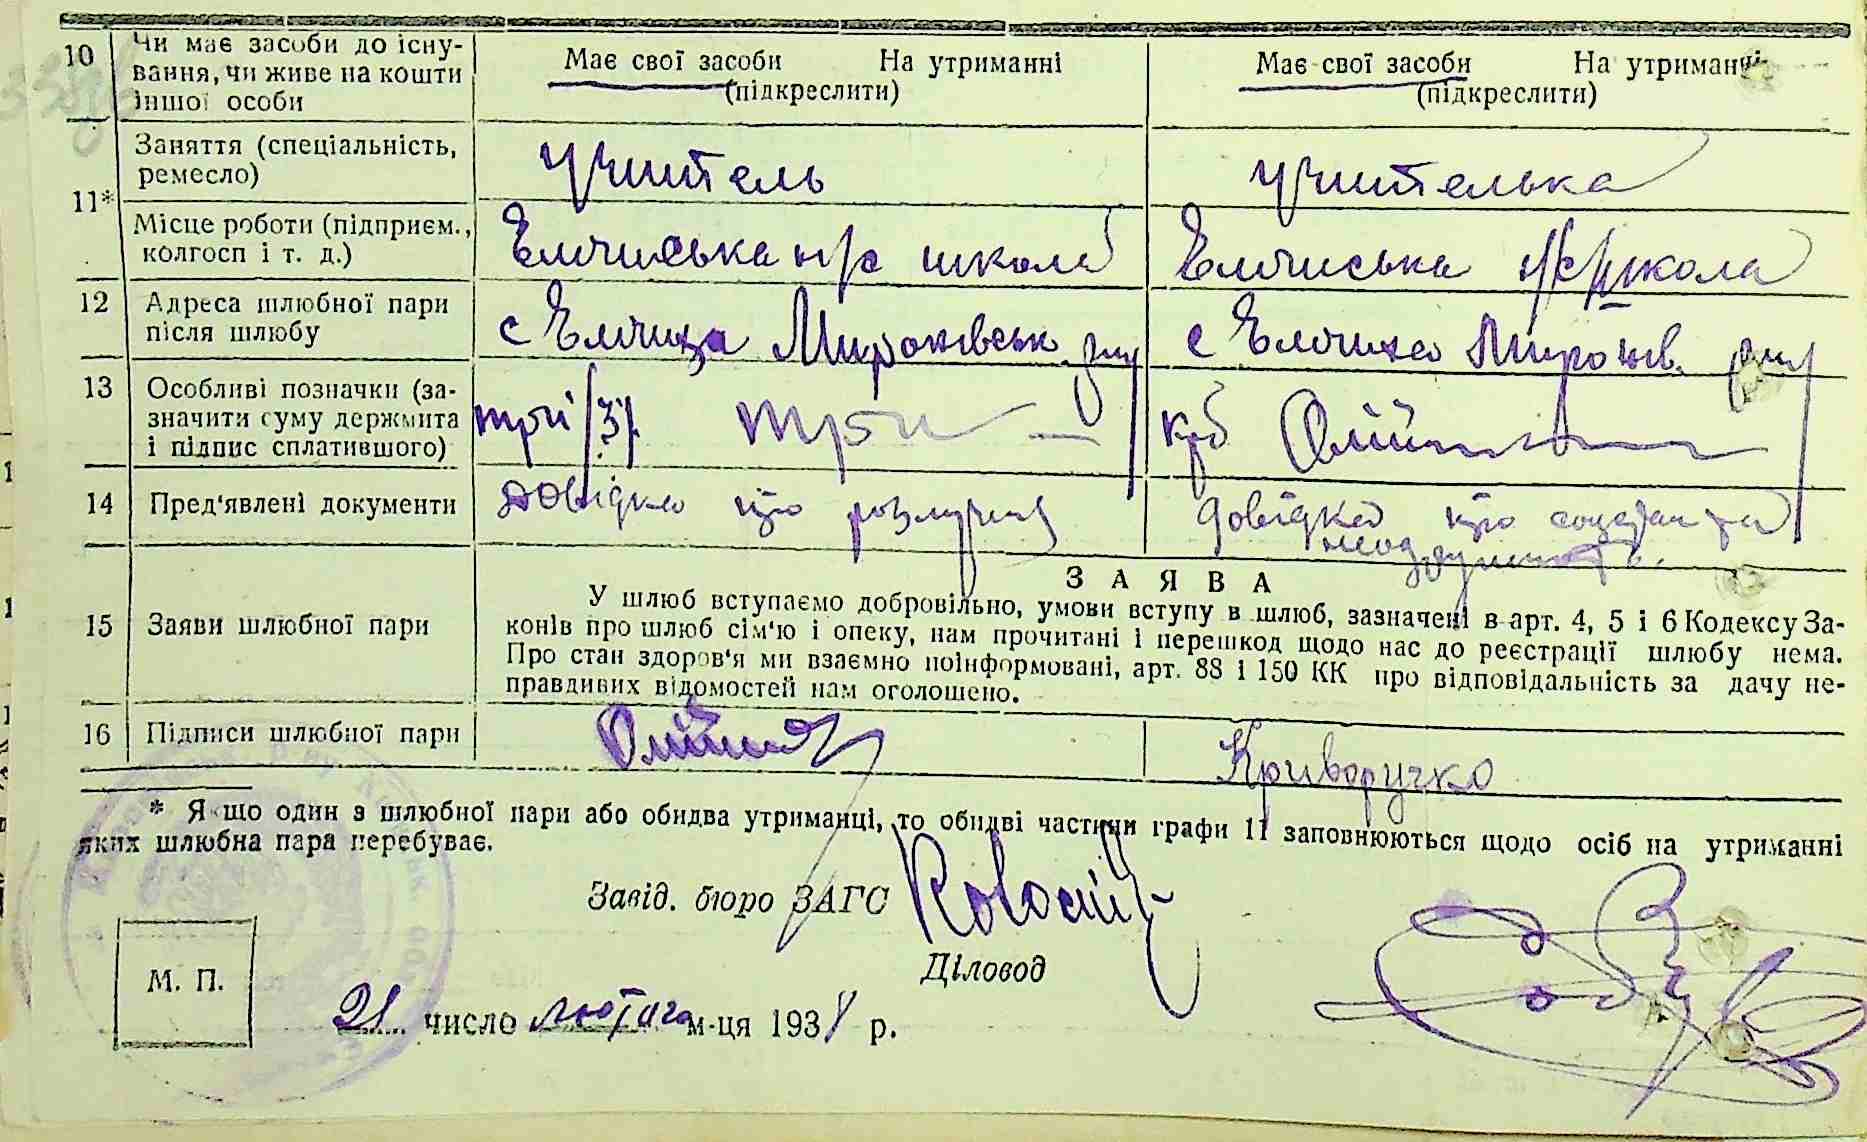 10 Чи має засоби до існу-
вання, чи живе на кошти
іншої особи
Має свої засоби На утриманні
(підкреслити)
Має свої засоби На утриманні
(підкреслити)
11*
Заняття (спеціальність,
ремесло)
учитель
учителька
Місце роботи (підприєм.,
колгосп і т. д.)
Емчиська н/с школа
Емчиська н/с школа
12 Адреса шлюбної пари
після шлюбу
с Емчиха Миронівськ
с Емчиха Миронів.
13 Особливі позначки (за-
значити суму держмита
і підпис сплатившого)
три /3/ три
крб Олійник
14 Пред'явлені документи
Довідка про
Довідка про
15 Заяви шлюбної пари
ЗАЯВА
У шлюб вступаємо добровільно, умови вступу в шлюб, зазначені в арт. 4, 5 і 6 Кодексу За-
конів про шлюб сім'ю і опеку, нам прочитані і перешкод щодо нас до реєстрації шлюбу нема.
Про стан здоров'я ми взаємно поінформовані, арт. 88 і 150 КК про відповідальність за дачу не-
правдивих відомостей нам оголошено.
16 Підписи шлюбної пари
Олійник
Криворучко
* Якщо один з шлюбної пари або обидва утриманці, то обидві частини графи 11 заповнюються щодо осіб на утриманні
яких шлюбна пара перебуває.
Завід. бюро ЗАГС
Діловод
М. П.
21 число лютого м-ця 193 р.